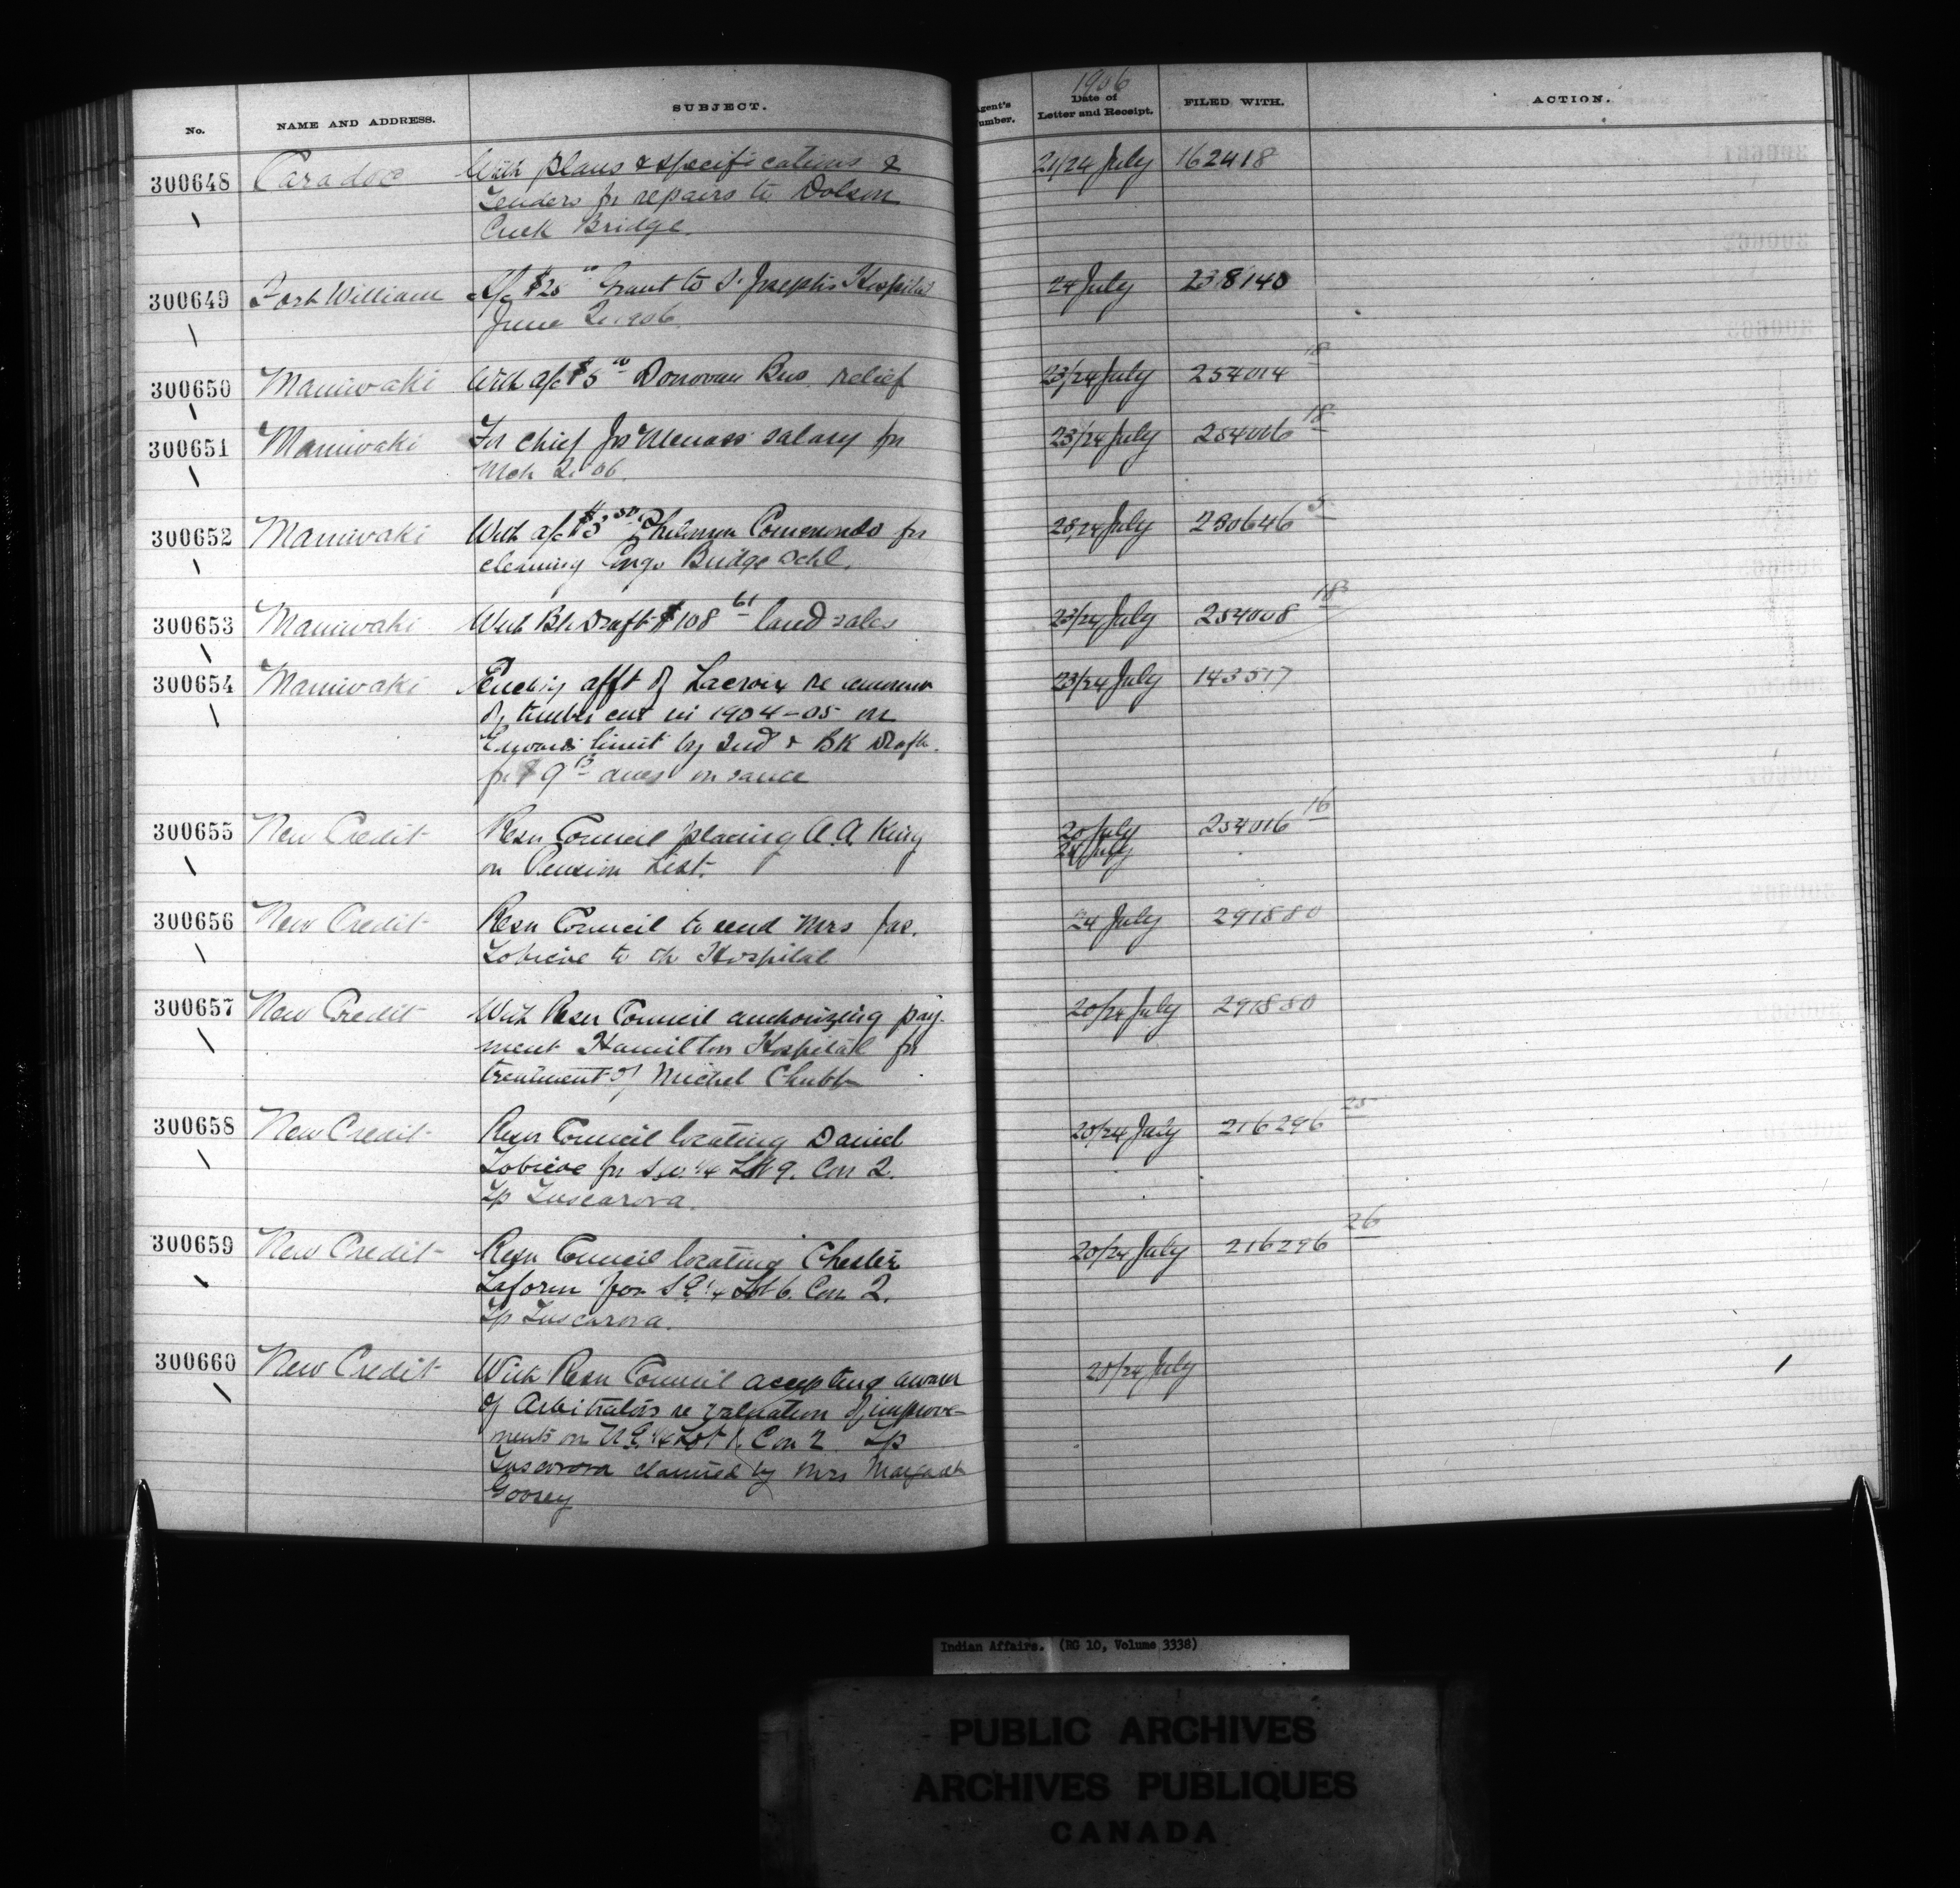 No.
NAME AND ADDRESS.
SUBJECT.
Agent's Number.
1906
Date of Letter and Receipt.
FILED WITH.
ACTION.
300648 Caradoc With plans & specifications & 21/24 July 162418
Tenders for repairs to Dolson
Creek Bridge.
300649 Fort William a/c $25 00 Grant to St Joseph's Hospital 24 July 238140
June 1906.
300650 Maniwaki With a/c $5 00 Donovan Bros. relief 23/24 July 254014 18
300651 Maniwaki For chief salary for 23/24 July 254006 18
Mch '06
300652 Maniwaki With a/c $3 50 Commondo for 23/24 July 280646 5
cleaning Congo Bridge Schl.
300653 Maniwaki With Bk Draft $108 61 land sales 23/24 July 254008 18
300654 Maniwaki afft of Lacroix re amount 23/24 July 143517
of timber cut in 1904-05 on
limit by & BK Draft
for $9 dues on same
300655 New Credit Resn Council placing A.A. King 20 July 254016 16
on Pension List. 24 July
300656 New Credit Resn Council to send Mrs Jas. 24 July 291880
Tobicoe to the Hospital
300657 New Credit With Resn Council authorizing pay- 20/24 July 291880
ment Hamilton Hospital for
treatment of Michel Chubb
300658 New Credit Resn Council locating Daniel 20/24 July 216296 25
Tobicoe for S.W. 1/4 Lot 9. Con 2.
Tp Tuscarora.
300659 New Credit Resn Council locating Chester 20/24 July 216296 26
Laform for S E 1/4 Lot 6. Con 2.
Tp Tuscarora.
300660 New Credit With Resn Council accepting award 20/24 July
of Arbitrators re valuation of improve-
ments on N.E. 1/4 Lot 1. Con 2 Tp
Tuscarora claimed by Mrs Margaret
Indian Affairs. (RG 10, Volume 3338)
PUBLIC ARCHIVES
ARCHIVES PUBLIQUES
CANADA